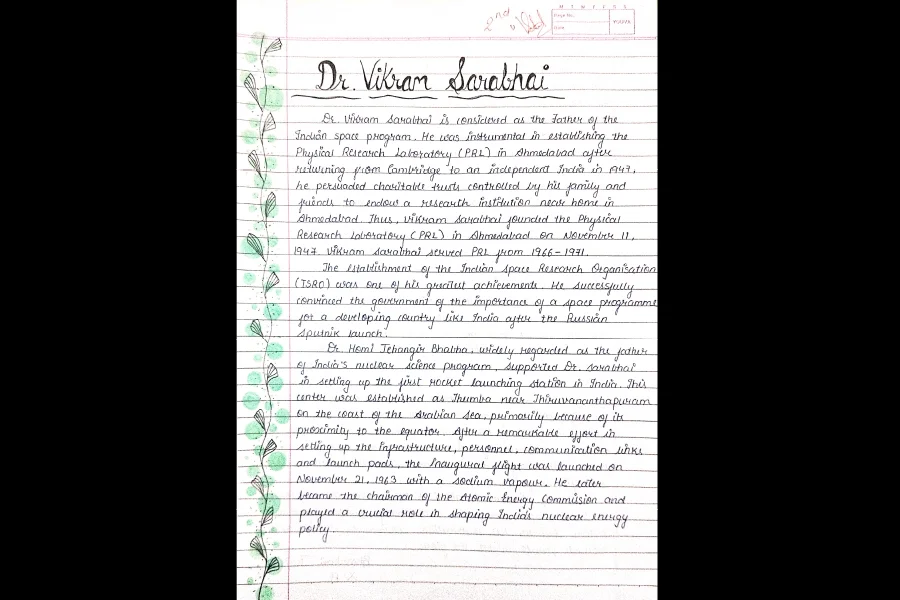 2nd
M T W T F S S
Page No.:
Date:
YOUVA
Dr. Vikram Sarabhai
Dr. Vikram Sarabhai is considered as the Father of the
Indian space program. He was instrumental in establishing the
Physical Research Laboratory (PRL) in Ahmedabad after
returning from Cambridge to an independent India in 1947,
he persuaded charitable trusts controlled by his family and
friends to endow a research institution near home in
Ahmedabad. Thus, Vikram Sarabhai founded the Physical
Research Laboratory (PRL) in Ahmedabad on November 11,
1947. Vikram Sarabhai served PRL from 1966-1971.
The establishment of the Indian Space Research Organisation
(ISRO) was one of his greatest achievements. He successfully
convinced the government of the importance of a space programme
for a developing country like India after the Russian
Sputnik launch.
Dr. Homi Jehangir Bhabha, widely regarded as the father
of India's nuclear science program, supported Dr. Sarabhai
in setting up the first rocket launching station in India. This
center was established as Thumba near Thiruvananthapuram
on the coast of the Arabian Sea, primarily because of its
proximity to the equator. After a remarkable effort in
setting up the infrastructure, personnel, communication links
and launch pads, the inaugural flight was launched on
November 21, 1963 with a sodium vapour. He later
became the chairman of the Atomic Energy Commission and
played a crucial role in shaping India's nuclear energy
policy.